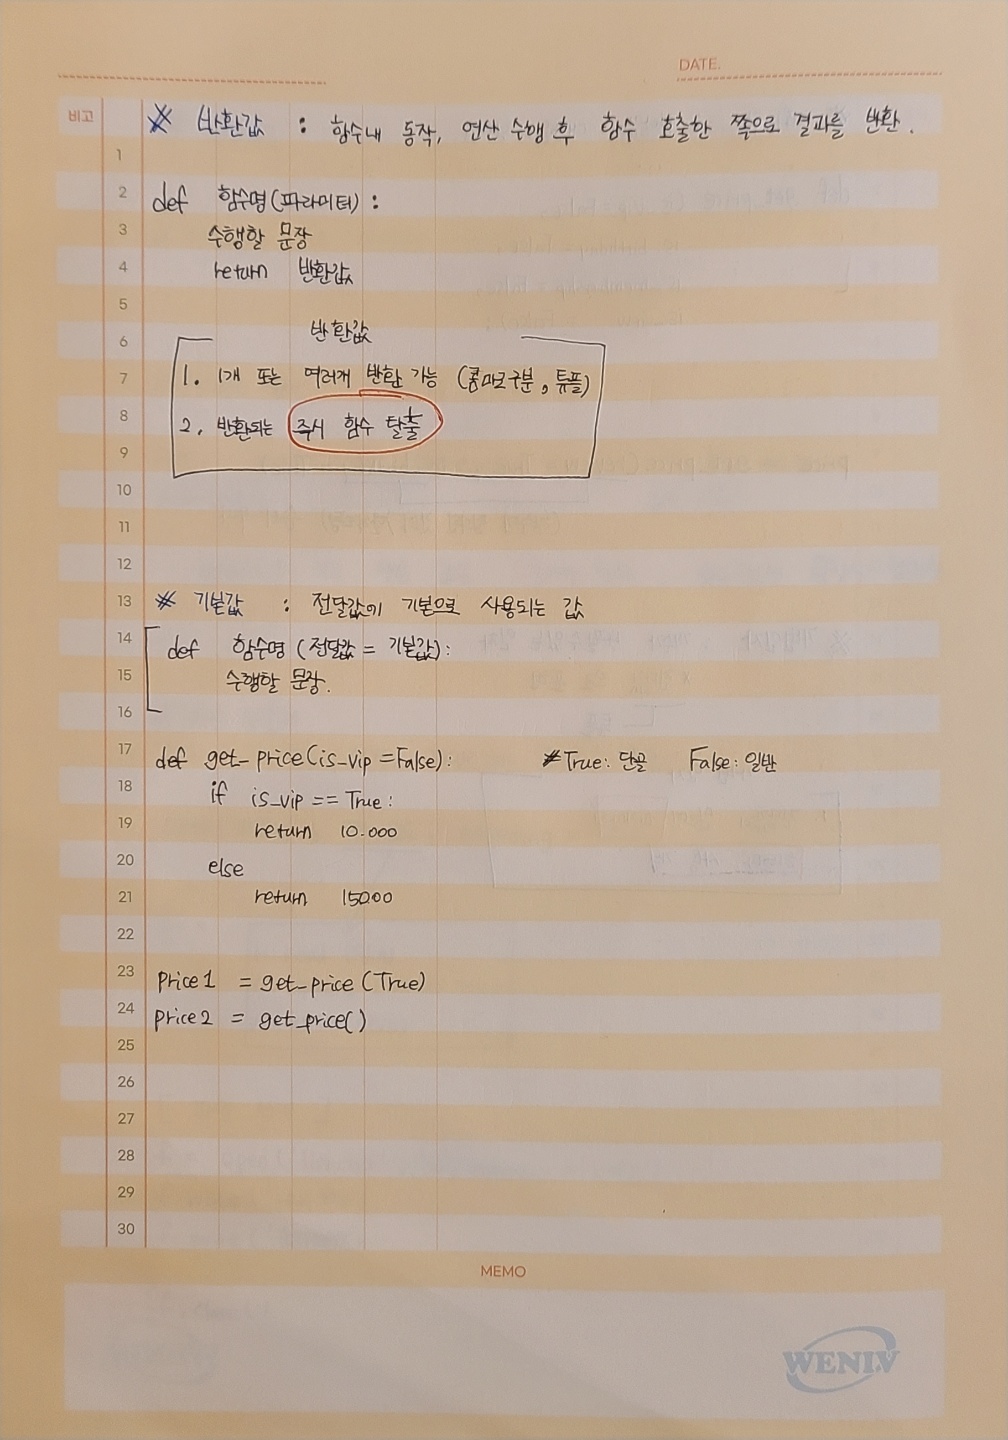 DATE.
비고
※ 반환값 : 함수내 동작, 연산 수행 후 함수 호출한 쪽으로 결과를 반환.
1
2 def 함수명(파라미터):
3 수행할 문장
4 return 반환값
5
6 반환값
7 1. 1개 또는 여러개 반환 가능 (콤마로구분, 튜플)
8 2. 반환되는 즉시 함수 탈출
9
10
11
12
13 ※ 기본값 : 전달값이 기본으로 사용되는 값
14 def 함수명 (전달값 = 기본값):
15 수행할 문장.
16
17 def get_price(is_vip=False): #True: 단골 False: 일반
18 if is_vip == True:
19 return 10.000
20 else
21 return 15000
22
23 price1 = get_price(True)
24 price2 = get_price()
25
26
27
28
29
30
MEMO
WENIV